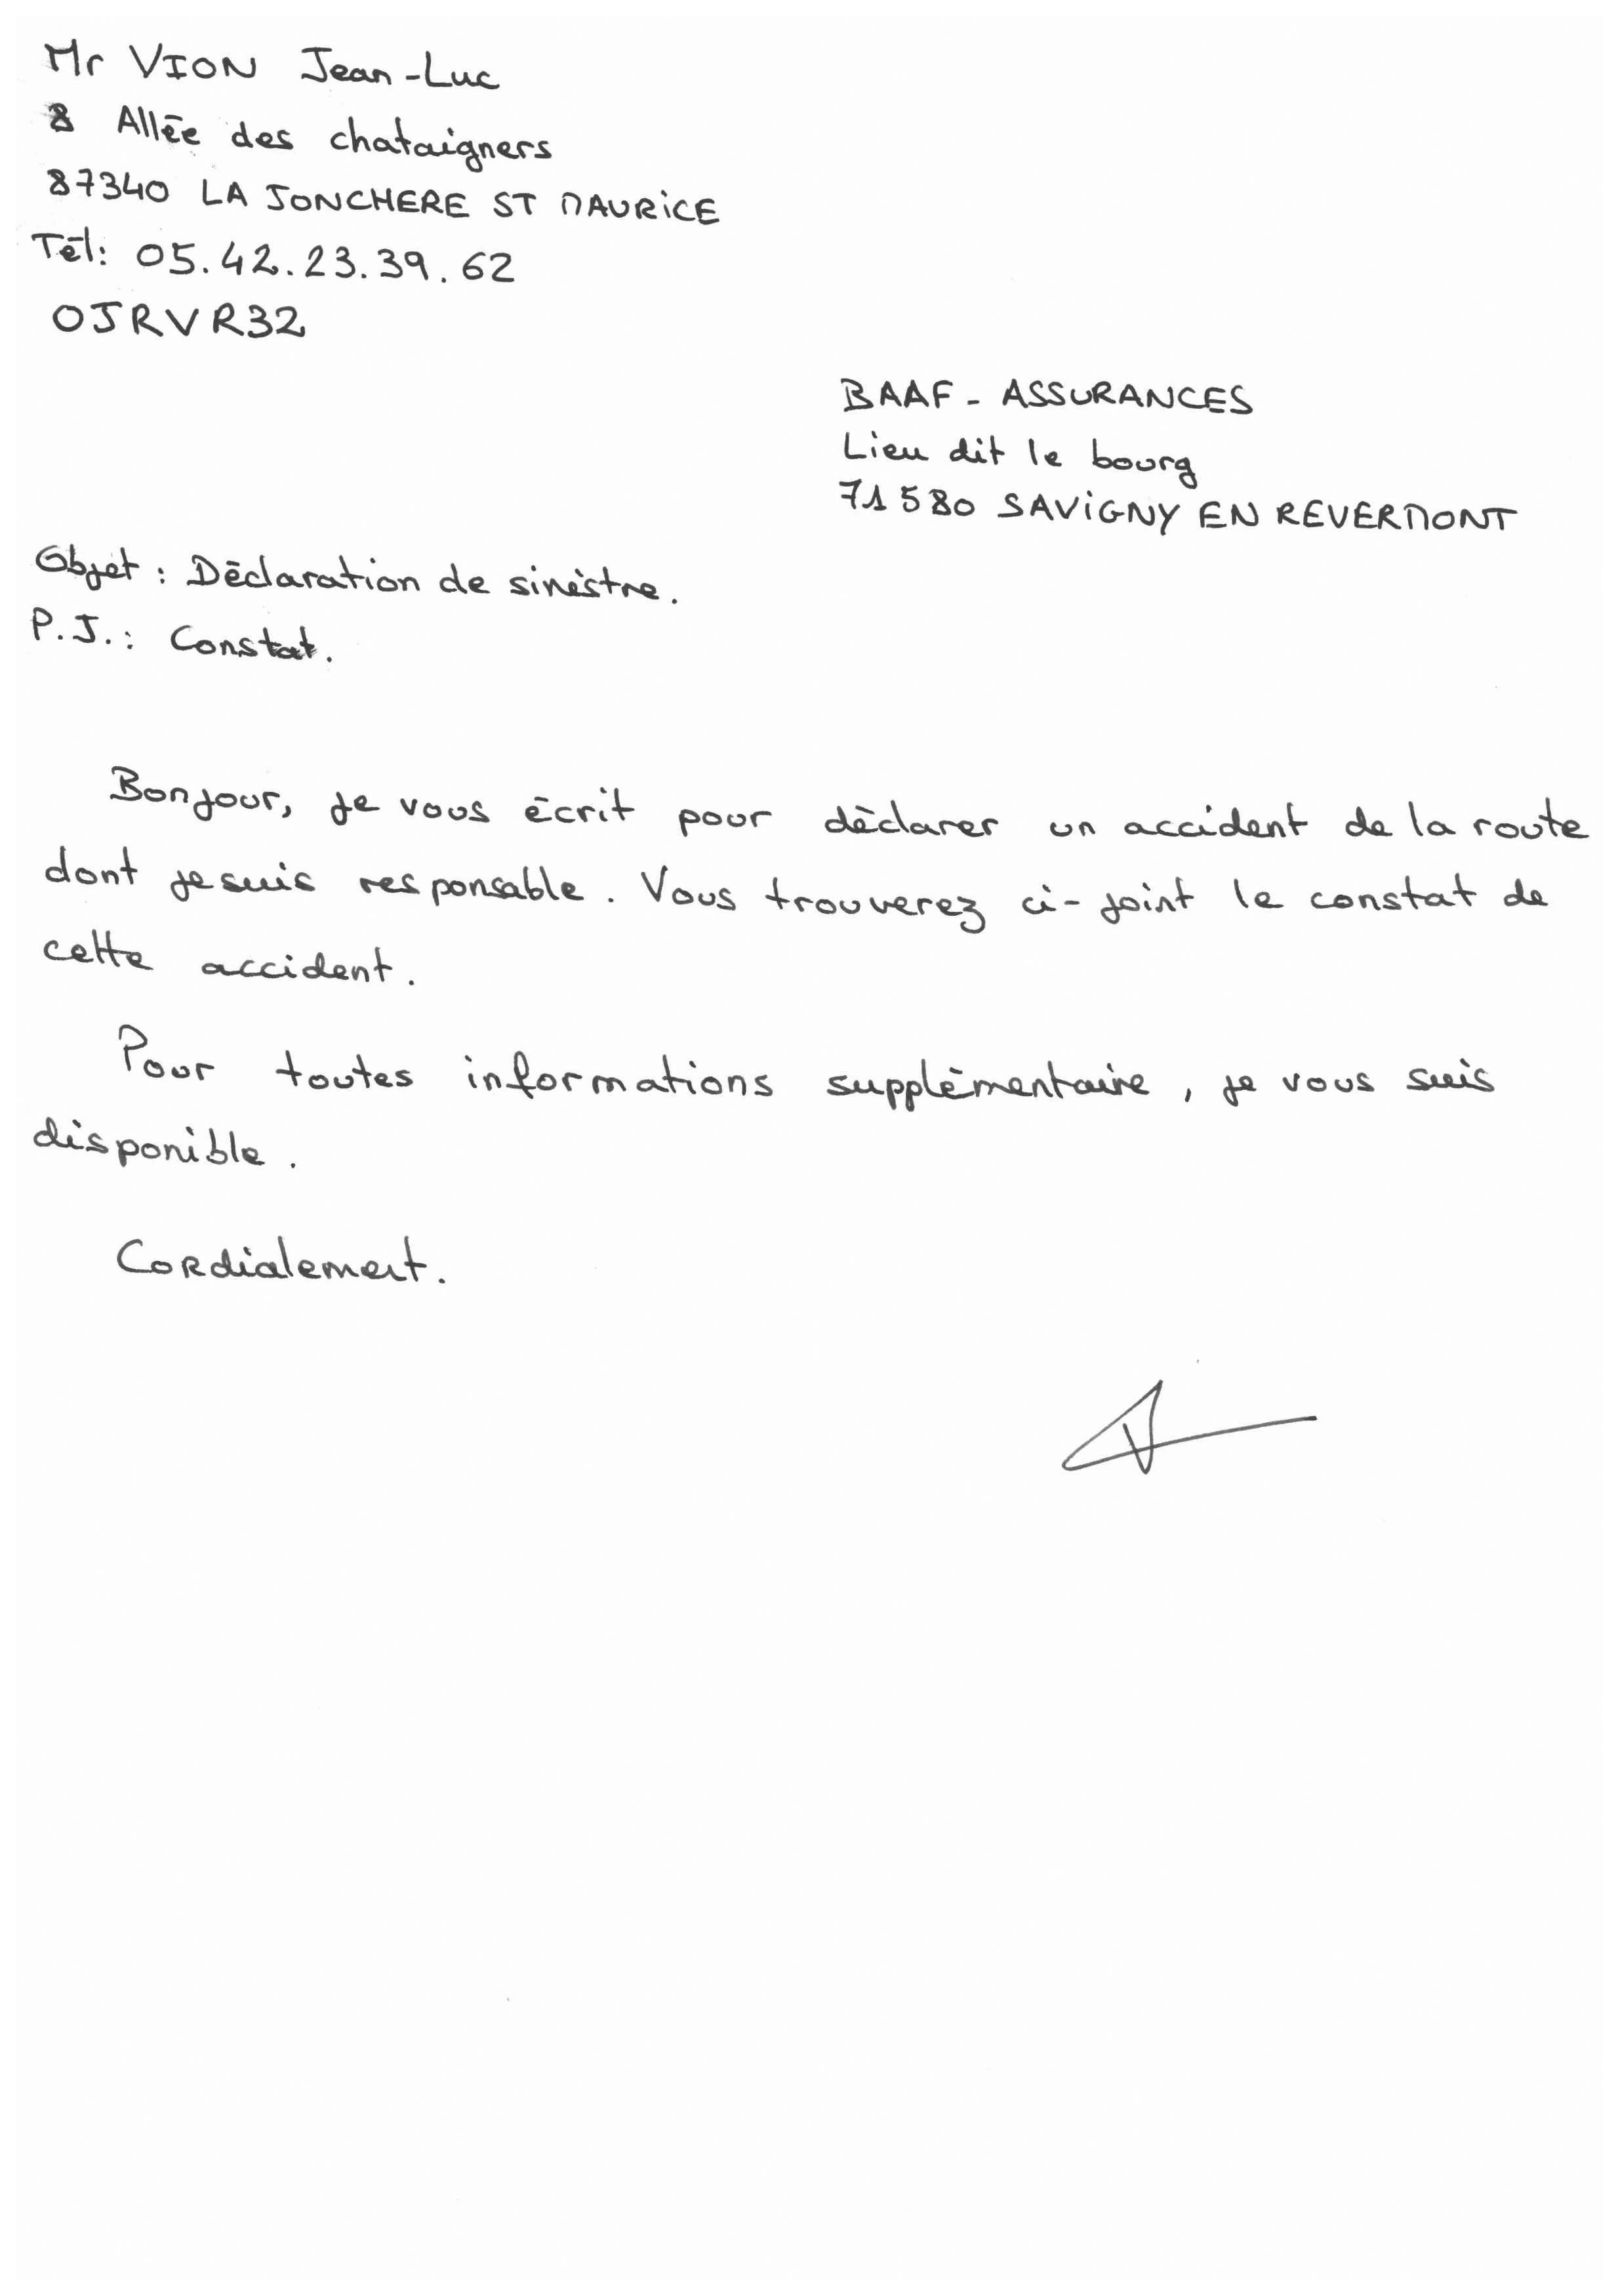 Mr VION Jean-Luc
8 Allée des chataigners
87340 LA JONCHERE ST MAURICE
Tél: 05.42.23.39.62
OJRVR32
BAAF - ASSURANCES
Lieu dit le bourg
71580 SAVIGNY EN REVERMONT
Objet : Déclaration de sinistre.
P.J. : Constat.
Bonjour, je vous écrit pour déclarer un accident de la route
dont je suis responsable. Vous trouverez ci-joint le constat de
cette accident.
Pour toutes informations supplémentaire, je vous suis
disponible.
Cordialement.